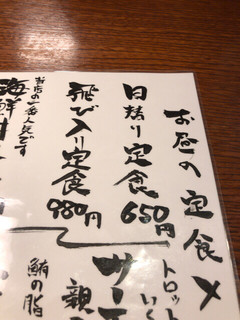 お昼の定食メ
日替り定食 650円
飛び入り定食 980円
当店の一番人気です
海鮮丼
トロット
いく
サー
親
鮪の脂